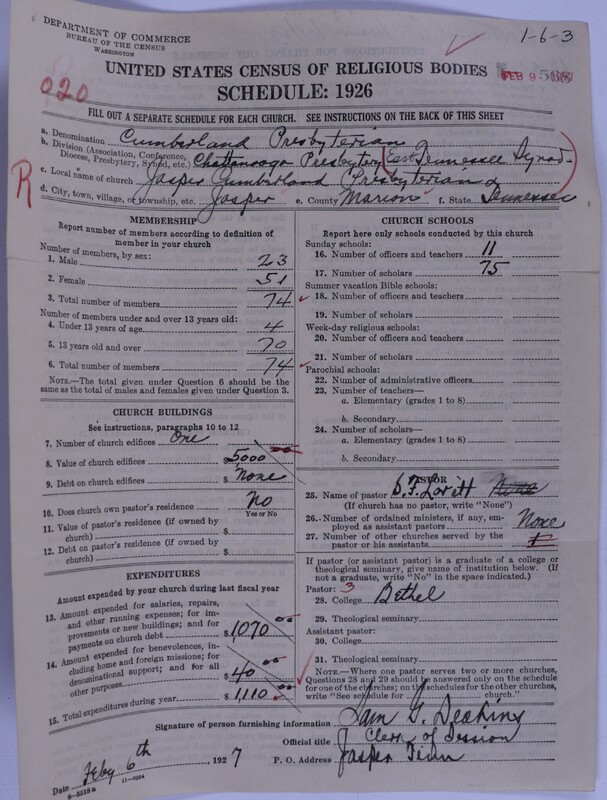 DEPARTMENT OF COMMERCE
BUREAU OF THE CENSUS
WASHINGTON
1-6-3
UNITED STATES CENSUS OF RELIGIOUS BODIES
FEB 9
568
SCHEDULE: 1926
020
FILL OUT A SEPARATE SCHEDULE FOR EACH CHURCH. SEE INSTRUCTIONS ON THE BACK OF THIS SHEET
a. Denomination Cumberland Presbyterian
b. Division (Association, Conference, Diocese, Presbytery, Synod, etc.) Chattanooga Presbytery (East Tennessee Synod)
c. Local name of church Jasper Cumberland Presbyterian
R
d. City, town, village, or township, etc. Jasper e. County Marion f. State Tennessee
MEMBERSHIP
Report number of members according to definition of
member in your church
Number of members, by sex:
1. Male 23
2. Female 51
3. Total number of members 74
Number of members under and over 13 years old:
4. Under 13 years of age 4
5. 13 years old and over 70
6. Total number of members 74
NOTE.—The total given under Question 6 should be
same as the total of males and females given under Question 3.
CHURCH BUILDINGS
See instructions, paragraphs 10 to 12
7. Number of church edifices One
8. Value of church edifices $ 5000
9. Debt on church edifices $ None
10. Does church own pastor's residence No
Yes or No
11. Value of pastor's residence (if owned by
church) $
12. Debt on pastor's residence (if owned by
church) $
EXPENDITURES
Amount expended by your church during last fiscal year
13. Amount expended for salaries, repairs,
and other running expenses; for im-
provements or new buildings; and for
payments on church debt $ 1070 00
14. Amount expended for benevolences, in-
cluding home and foreign missions; for
denominational support; and for all
other purposes $ 40 00
15. Total expenditures during year $ 1,110 00
CHURCH SCHOOLS
Report here only schools conducted by this church
Sunday schools:
16. Number of officers and teachers 11
17. Number of scholars 75
Summer vacation Bible schools:
18. Number of officers and teachers
19. Number of scholars
Week-day religious schools:
20. Number of officers and teachers
21. Number of scholars
Parochial schools:
22. Number of administrative officers
23. Number of teachers—
a. Elementary (grades 1 to 8)
b. Secondary
24. Number of scholars—
a. Elementary (grades 1 to 8)
b. Secondary
PASTOR
25. Name of pastor Lovitt None
(If church has no pastor, write "None")
26. Number of ordained ministers, if any, em-
ployed as assistant pastors None
27. Number of other churches served by the
pastor or his assistants 1
If pastor (or assistant pastor) is a graduate of a college or
theological seminary, give name of institution below. (If
not a graduate, write "No" in the space indicated.)
Pastor: 3
28. College Bethel
29. Theological seminary
Assistant pastor:
30. College
31. Theological seminary
NOTE.—Where one pastor serves two or more churches,
Questions 28 and 29 should be answered only on the schedule
for one of the churches; on the schedules for the other churches,
write "See schedule for church."
Signature of person furnishing information Sam G. Deakins
Official title Clerk of Session
Date Feby 6th 1927 P. O. Address Jasper Tenn
8-5318a 11-9264